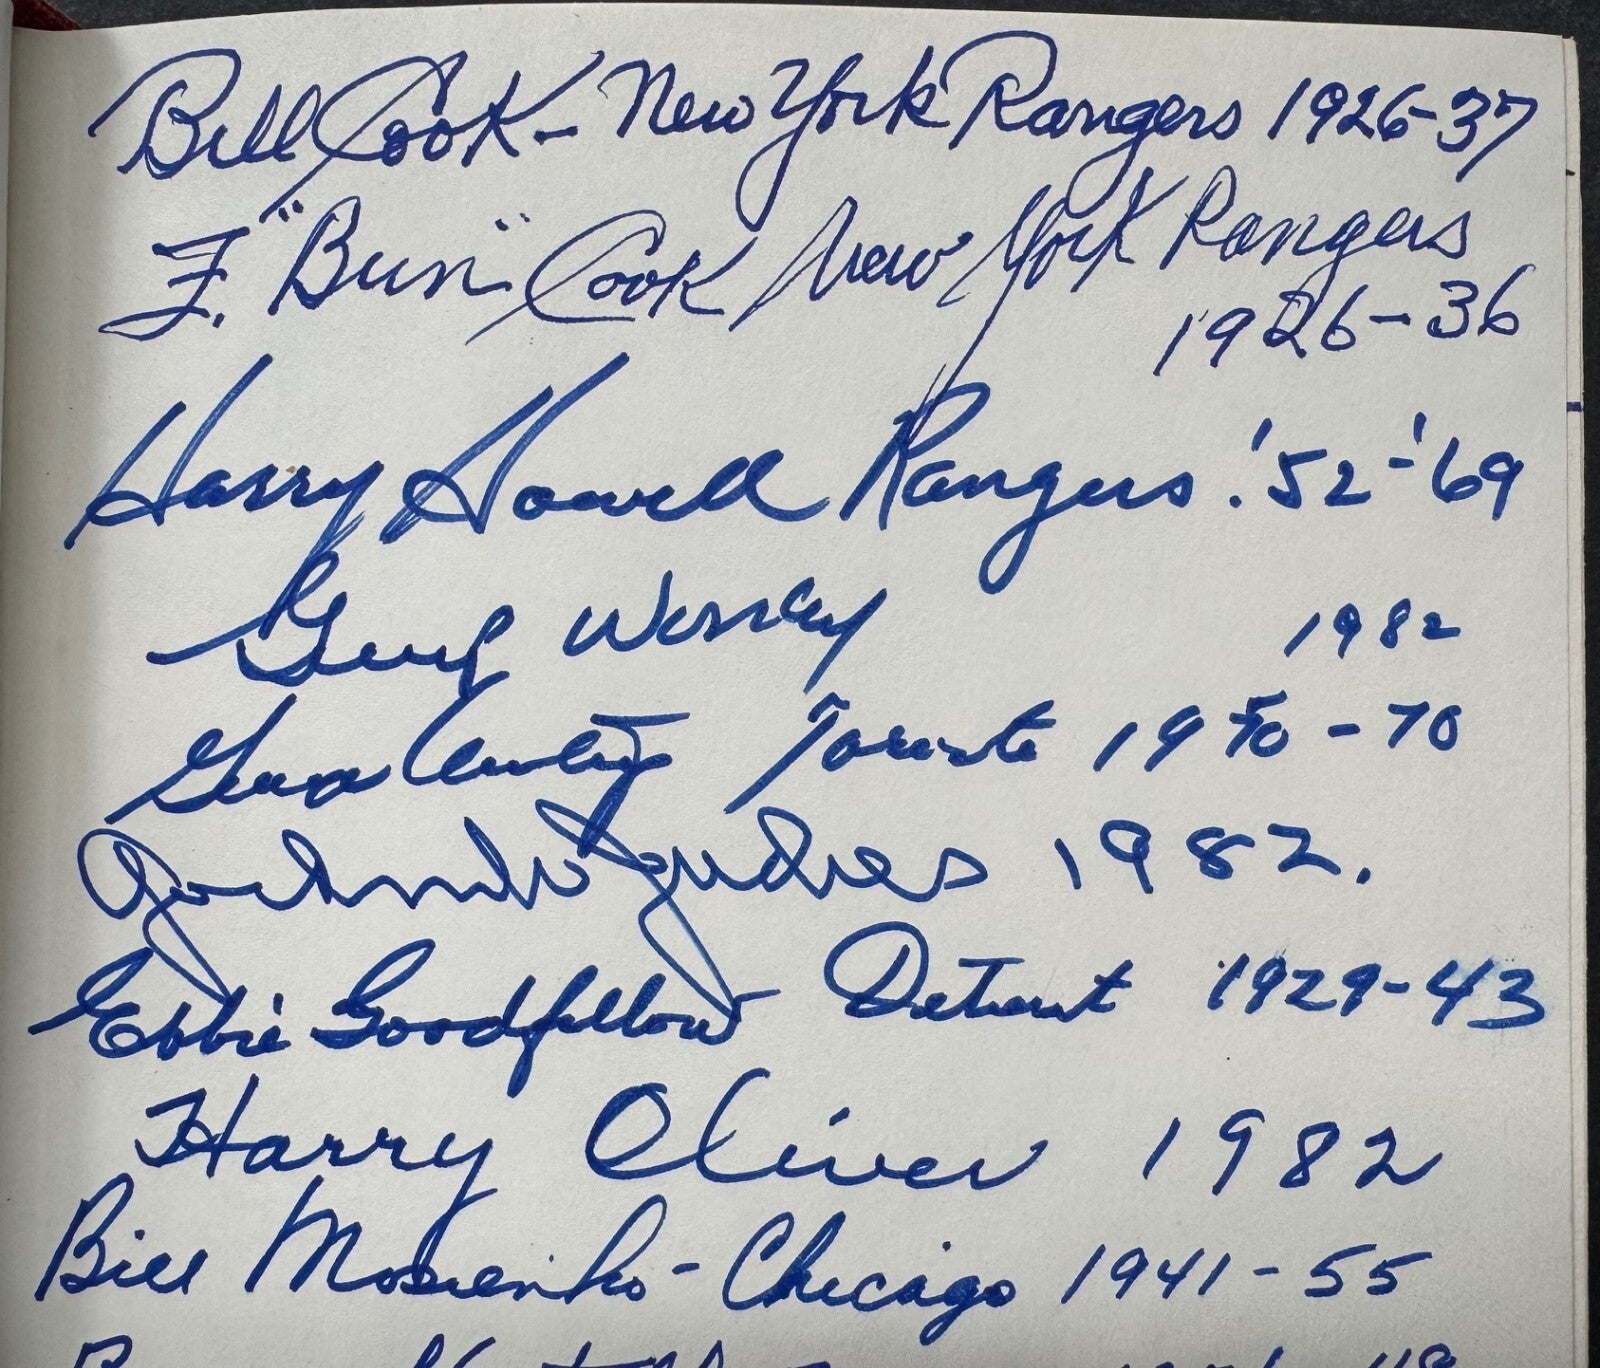 Bill Cook - New York Rangers 1926-37
F. "Bun" Cook New York Rangers
1926-36
Harry Howell Rangers. '52-'69
Gump Worsley 1982
Toronto 1950-70
1982.
Ebbie Goodfellow Detroit 1929-43
Harry Oliver 1982
Bill Mosienko - Chicago 1941-55